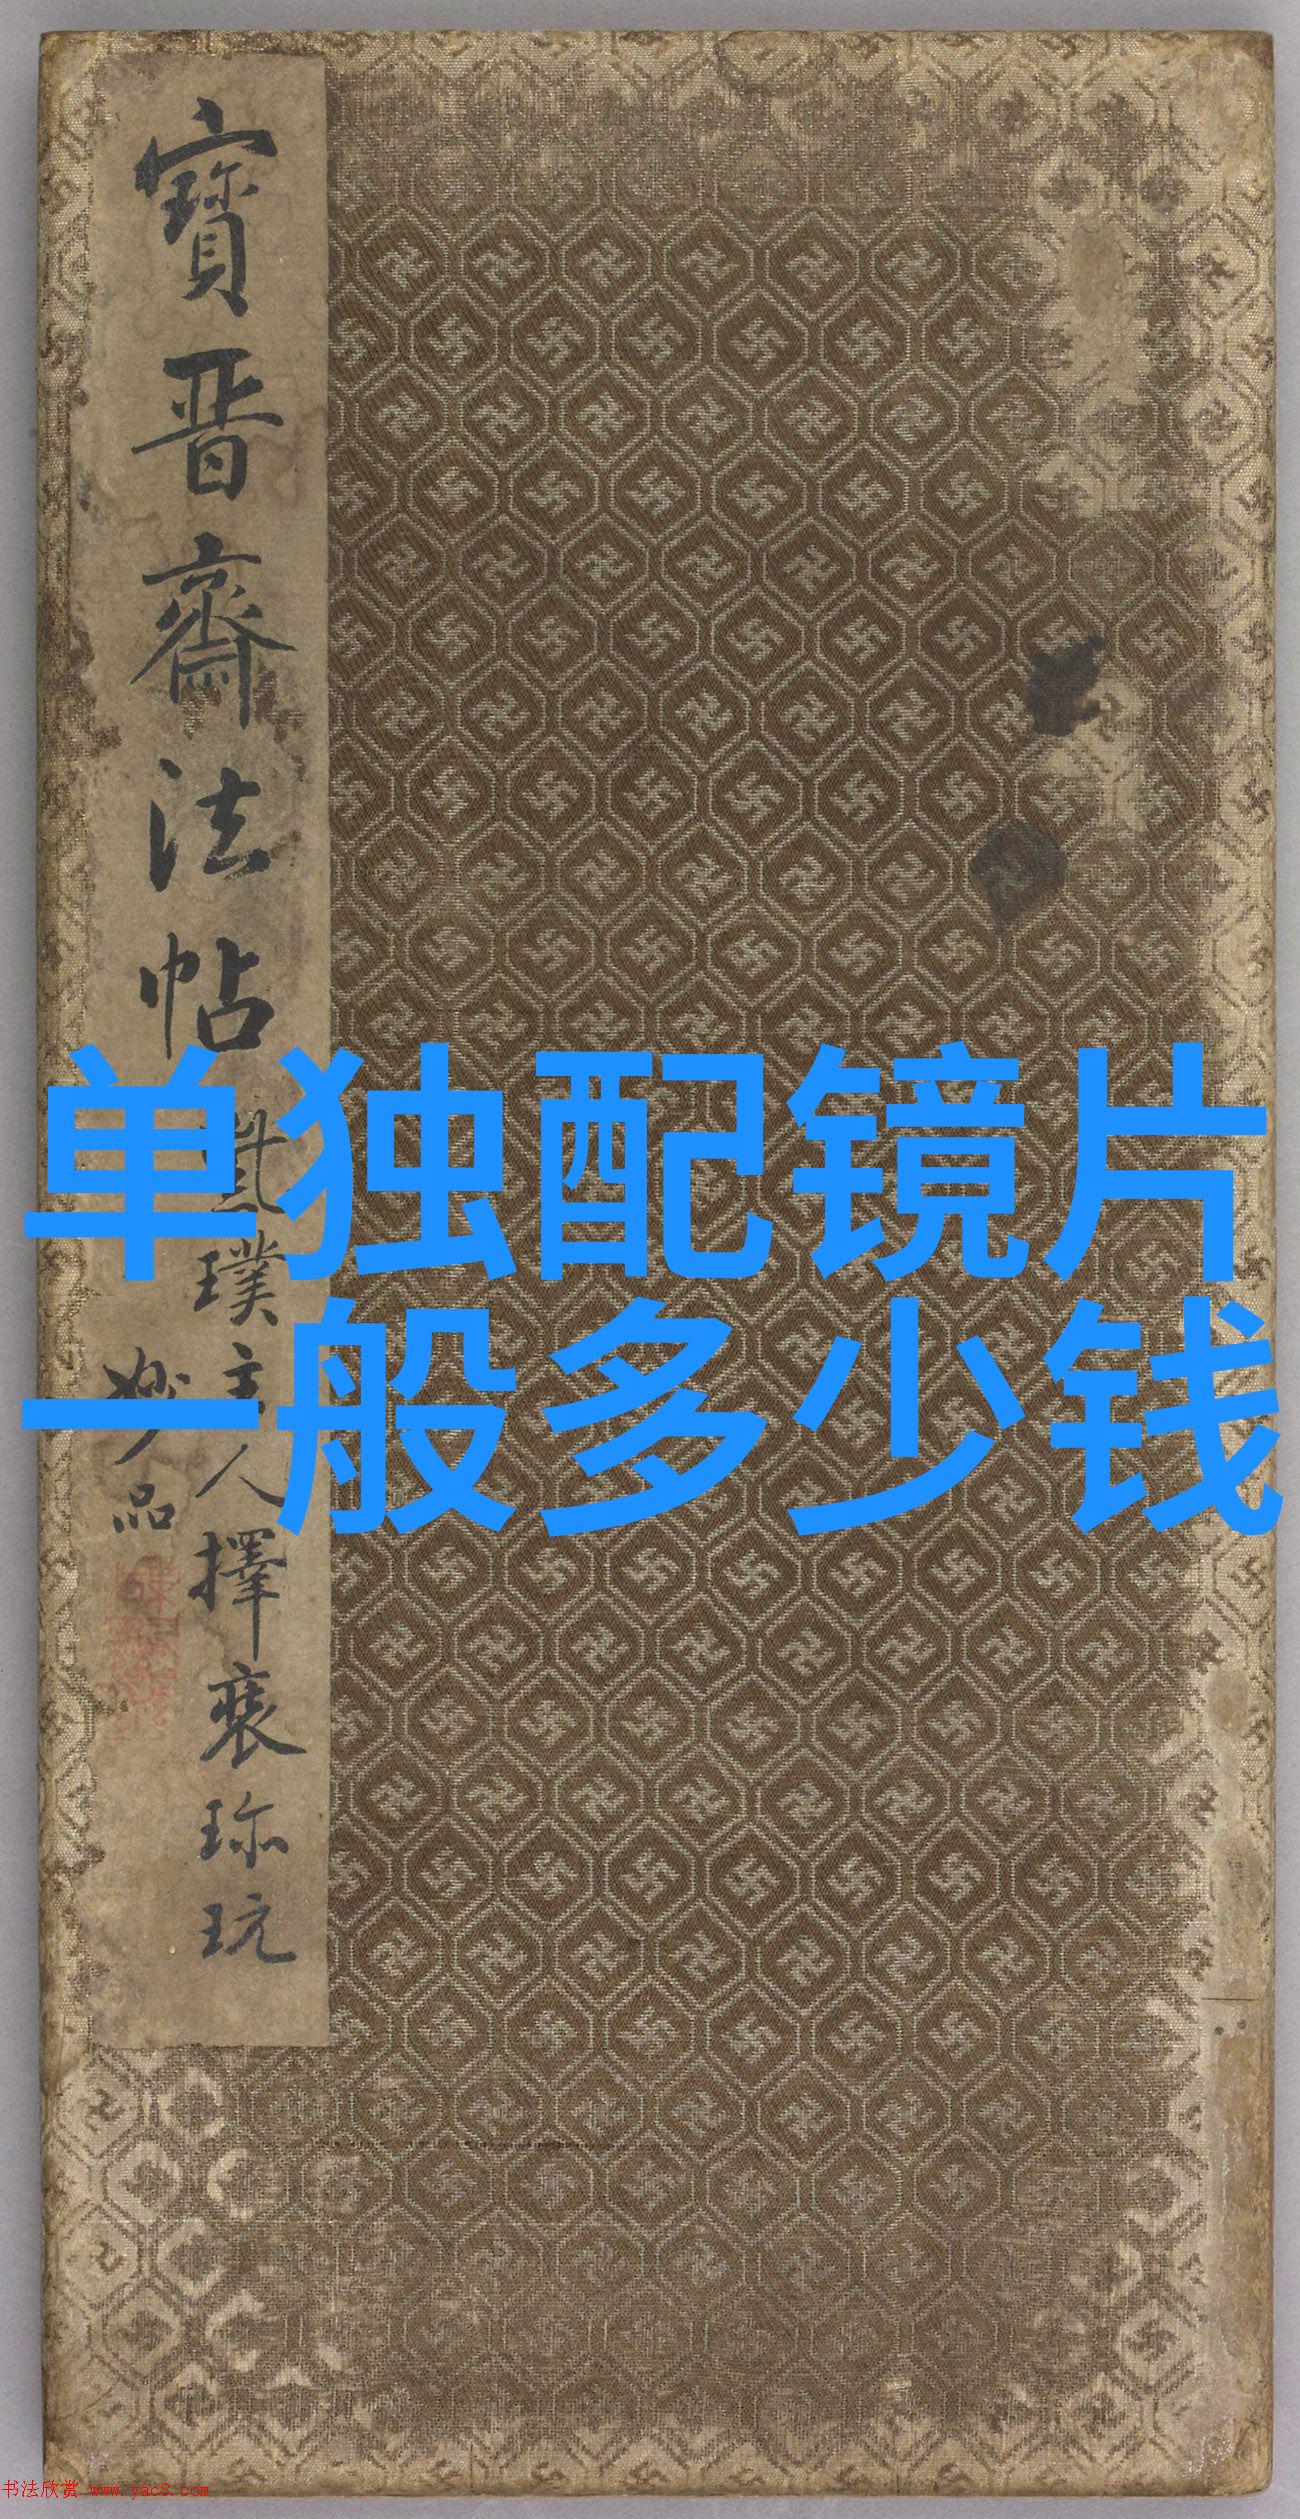 寳晋齋法帖
璞主人擇裹珎玩
妙品
单独配镜片
一般多少钱
书法欣赏 www.yac8.com